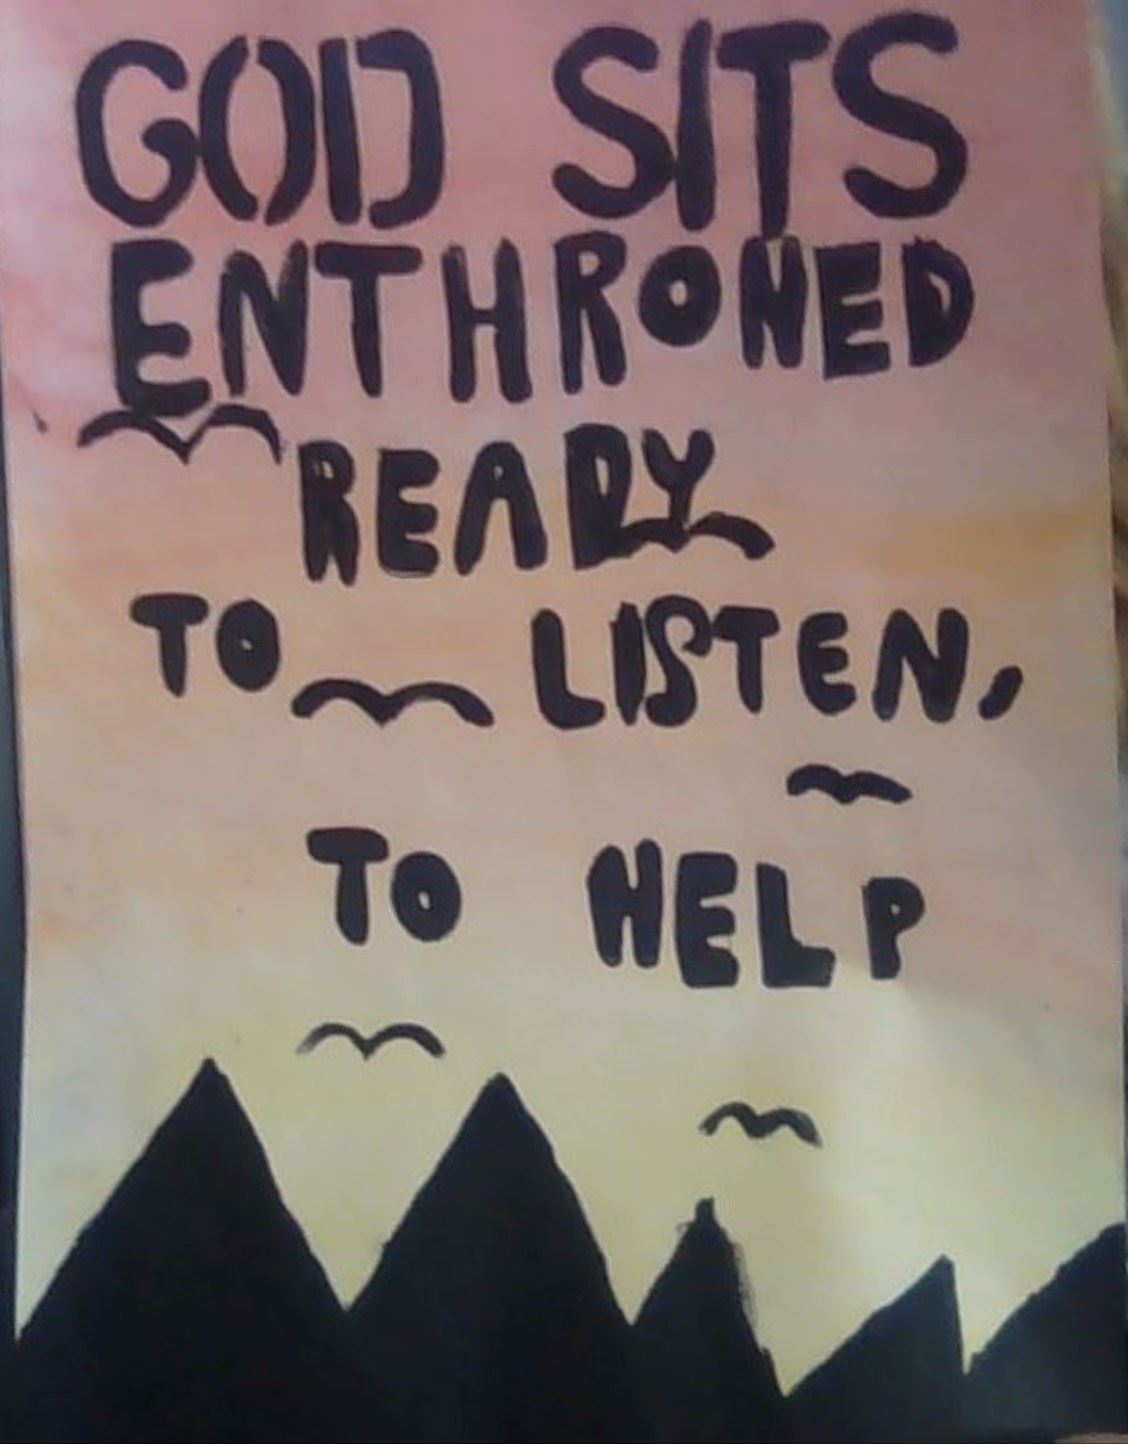 GOD SITS
ENTHRONED
READY
TO LISTEN,
TO HELP